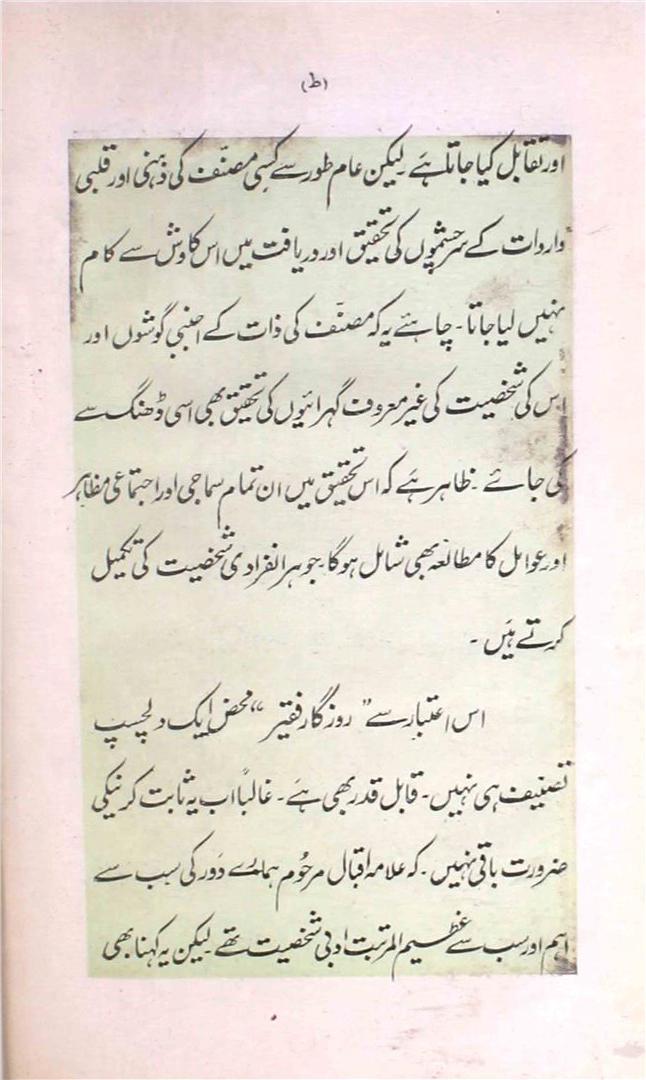 (ط)
اور تقابل کیا جاتا ہے ۔ لیکن عام طور سے کسی مصنّف کی ذہنی اور قلبی
واردات کے سرچشموں کی تحقیق اور دریافت میں اس کاوش سے کام
نہیں لیا جاتا ۔ چاہئے یہ کہ مصنّف کی ذات کے اجنبی گوشوں اور
اس کی شخصیت کی غیر معروف گہرائیوں کی تحقیق بھی اسی ڈھنگ سے
کی جائے ۔ ظاہر ہے کہ اس تحقیق میں ان تمام سماجی اور اجتماعی مظاہر
اور عوامل کا مطالعہ بھی شامل ہوگا ۔ جو ہر انفرادی شخصیت کی تکمیل
کرتے ہیں ۔
اس اعتبار سے ”روزگارِ فقیر“ محض ایک دلچسپ
تصنیف ہی نہیں ۔ قابل قدر بھی ہے ۔ غالباً اب یہ ثابت کرنیکی
ضرورت باقی نہیں ۔ کہ علامہ اقبال مرحُوم ہمارے دَور کی سب سے
اہم اور سب سے عظیم المرتبت ادبی شخصیت تھے ۔ لیکن یہ کہنا بھی